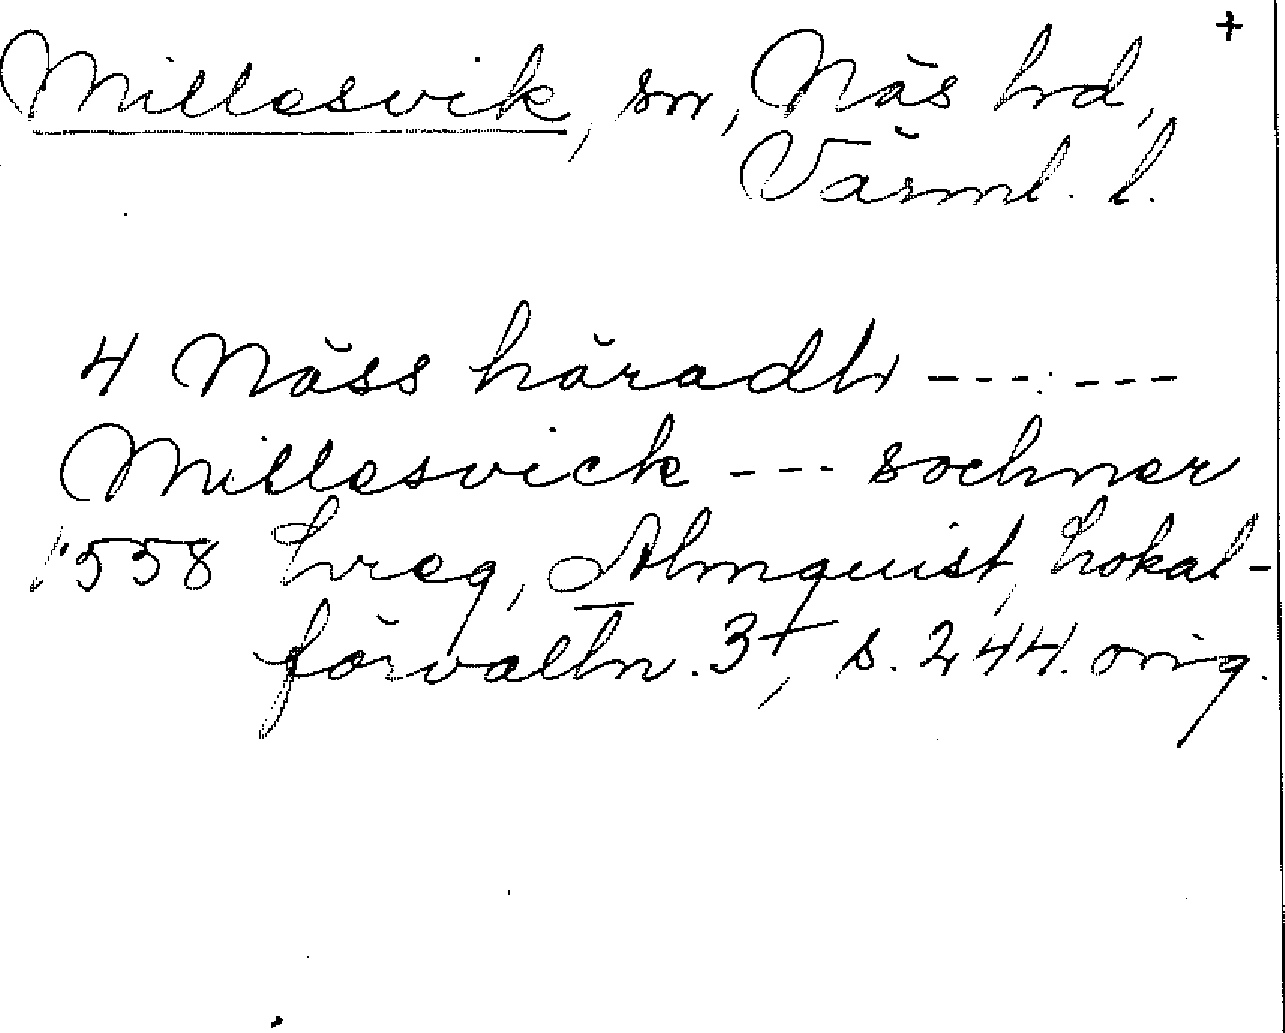 +
Millesvik, sn, Näs hd,
Värml. l.
4 Näss häradh ---:---
Millesvick --- sochner
1558 Lreg, Almquist, Lokal-
förvaltn. 3, s. 244. orig.